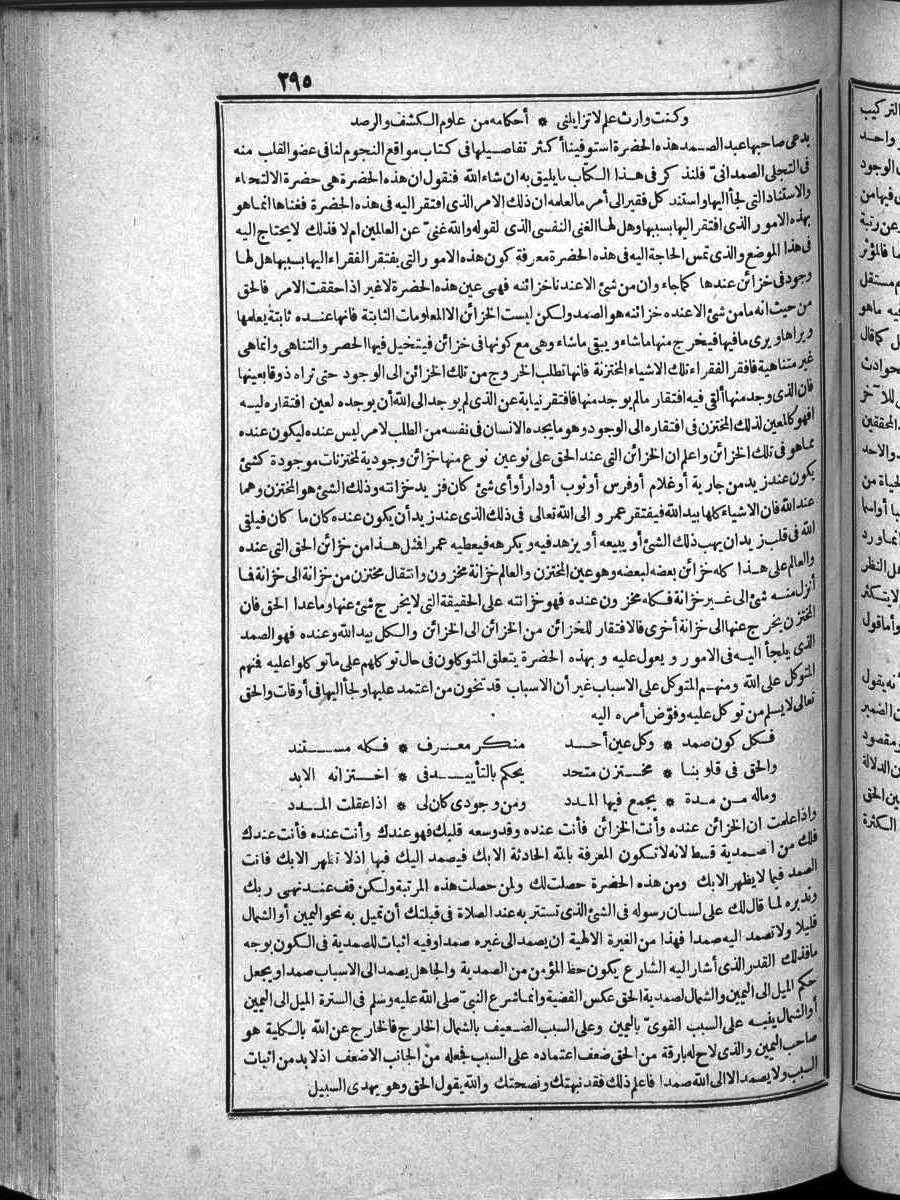 ٣٩٥
وكنت وارث علم لا تزايلنى * أحكامه من علوم الكشف والرصد
يدعى صاحبها عبد الصمد هذه الحضرة استوفينا أكثر تفاصيلها فى كتاب مواقع النجوم لنا فى عضو القلب منه
فى التجلى الصمدانىّ فلنذكر فى هذا الكتاب ما يليق به ان شاء الله فنقول ان هذه الحضرة هى حضرة الالتجاء
والاستناد التى لجأ اليها واستند كل فقير الى أمر ما لعلمه ان ذلك الامر الذى افتقر اليه فى هذه الحضرة فغناها انما هو
بهذه الامور الذى افتقر اليها بسببها وهل لها الغنى النفسى الذى لقوله والله غنىّ عن العالمين ام لا فذلك لا يحتاج اليه
فى هذا الموضع والذى تمس الحاجة اليه فى هذه الحضرة معرفة كون هذه الامور التى يفتقر الفقراء اليها بسببها هل لها
وجود فى خزائن عندها كما جاء وان من شئ الا عندنا خزائنه فهى عين هذه الحضرة لا غير اذا حققت الامر فالحق
من حيث انه ما من شئ الا عنده خزائنه هو الصمد ولكن ليست الخزائن الا المعلومات الثابتة فانها عنده ثابتة يعلمها
ويراها ويرى ما فيها فيخرج منها ما شاء ويبقى ما شاء وهى مع كونها فى خزائن فيتخيل فيها الحصر والتناهى وانما هى
غير متناهية فافقر الفقراء تلك الاشياء المختزنة فانها تطلب الخروج من تلك الخزائن الى الوجود حتى تراه ذوقا بعينها
فان الذى وجد منها ألقى فيه افتقار ما لم يوجد منها فافتقر نيابة عن الذى لم يوجد الى الله أن يوجده لعين افتقاره ليه
افهو كالمعين لذلك المختزن فى افتقاره الى الوجود وهو ما يجده الانسان فى نفسه من الطلب لامر ليس عنده ليكون عنده
مما هو فى تلك الخزائن واعلم ان الخزائن التى عند الحق على نوعين نوع منها خزائن وجودية لمختزنات موجودة كشئ
يكون عند زيد من جارية أو غلام أو فرس أو ثوب أو دار أو أى شئ كان فزيد خزانته وذلك الشئ هو المختزن وهما
عند الله فان الاشياء كلها بيد الله فيفتقر عمرو الى الله تعالى فى ذلك الذى عند زيد أن يكون عنده كان ما كان فيلقى
الله فى قلب زيد ان يهب ذلك الشئ أو يبيعه أو يزهد فيه ويكرهه فيعطيه عمرا فمثل هذا من خزائن الحق التى عنده
والعالم على هذا كله خزائن بعضه لبعضه وهو عين المختزن والعالم خزانة مخزون وانتقال مختزن من خزانة الى خزانة فما
أنزل منه شئ الى غير خزانة فكله مخزون عنده فهو خزانته على الحقيقة التى لا يخرج شئ عنها وما عدا الحق فان
المختزن يخرج عنها الى خزانة أخرى فالافتقار للخزائن من الخزائن الى الخزائن والكل بيد الله وعنده فهو الصمد
الذى يلجأ اليه فى الامور ويعول عليه وبهذه الحضرة يتعلق المتوكلون فى حال توكلهم على ما توكلوا عليه فمنهم
المتوكل على الله ومنهم المتوكل على الاسباب غير أن الاسباب قد تخون من اعتمد عليها ولجأ اليها فى أوقات والحق
تعالى لا يسلم من توكل عليه وفوّض أمره اليه
فكل كون صمد * وكل عين أحد منكر معترف * فكله مستند
والحق فى قلوبنا * مختزن متحد يحكم بالتأييد فى * اختزانه الابد
وماله من مدة * يجمع فيها المدد ومن وجودى كان لى * اذا عقلت المدد
واذا علمت ان الخزائن عنده وأنت الخزائن فأنت عنده وقد وسعه قلبك فهو عندك وأنت عنده فأنت عندك
فلك من الصمدية قسط لانه لا تكون المعرفة بالله الحادثة الا بك فيصمد اليك فيها اذ لا تظهر الا بك فانت
الصمد فيما لا يظهر الا بك ومن هذه الحضرة حصلت لك ولمن حصلت هذه المرتبة ولكن قف عند نهى ربك
وتدبره لما قال لك على لسان رسوله فى الشئ الذى تستتر به عند الصلاة فى قبلتك أن تميل به نحو اليمين أو الشمال
قليلا ولا تصمد اليه صمدا فهذا من الغيرة الالهية ان يصمد الى غيره صمدا وفيه اثبات للصمدية فى الكون بوجه
ما فذلك القدر الذى أشار اليه الشارع يكون حظ المؤمن من الصمدية والجاهل يصمد الى الاسباب صمدا ويجعل
حكم الميل الى اليمين والشمال لصمدية الحق عكس القضية وانما شرع النبىّ صلى الله عليه وسلم فى السترة الميل الى اليمين
أو الشمال ينبه على السبب القوىّ باليمين وعلى السبب الضعيف بالشمال الخارج فالخارج عن الله بالكلية هو
صاحب اليمين والذى لاح له بارقة من الحق ضعف اعتماده على السبب فجعله من الجانب الاضعف اذ لا بد من اثبات
السبب ولا يصمد الا الى الله صمدا فاعلم ذلك فقد نبهتك ونصحتك والله يقول الحق وهو يهدى السبيل